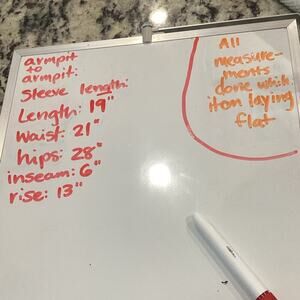 armpit
to
armpit:
Sleeve length:
Length: 19"
Waist: 21"
hips: 28"
inseam: 6"
rise: 13"
All
measure-
ments
done while
item laying
flat